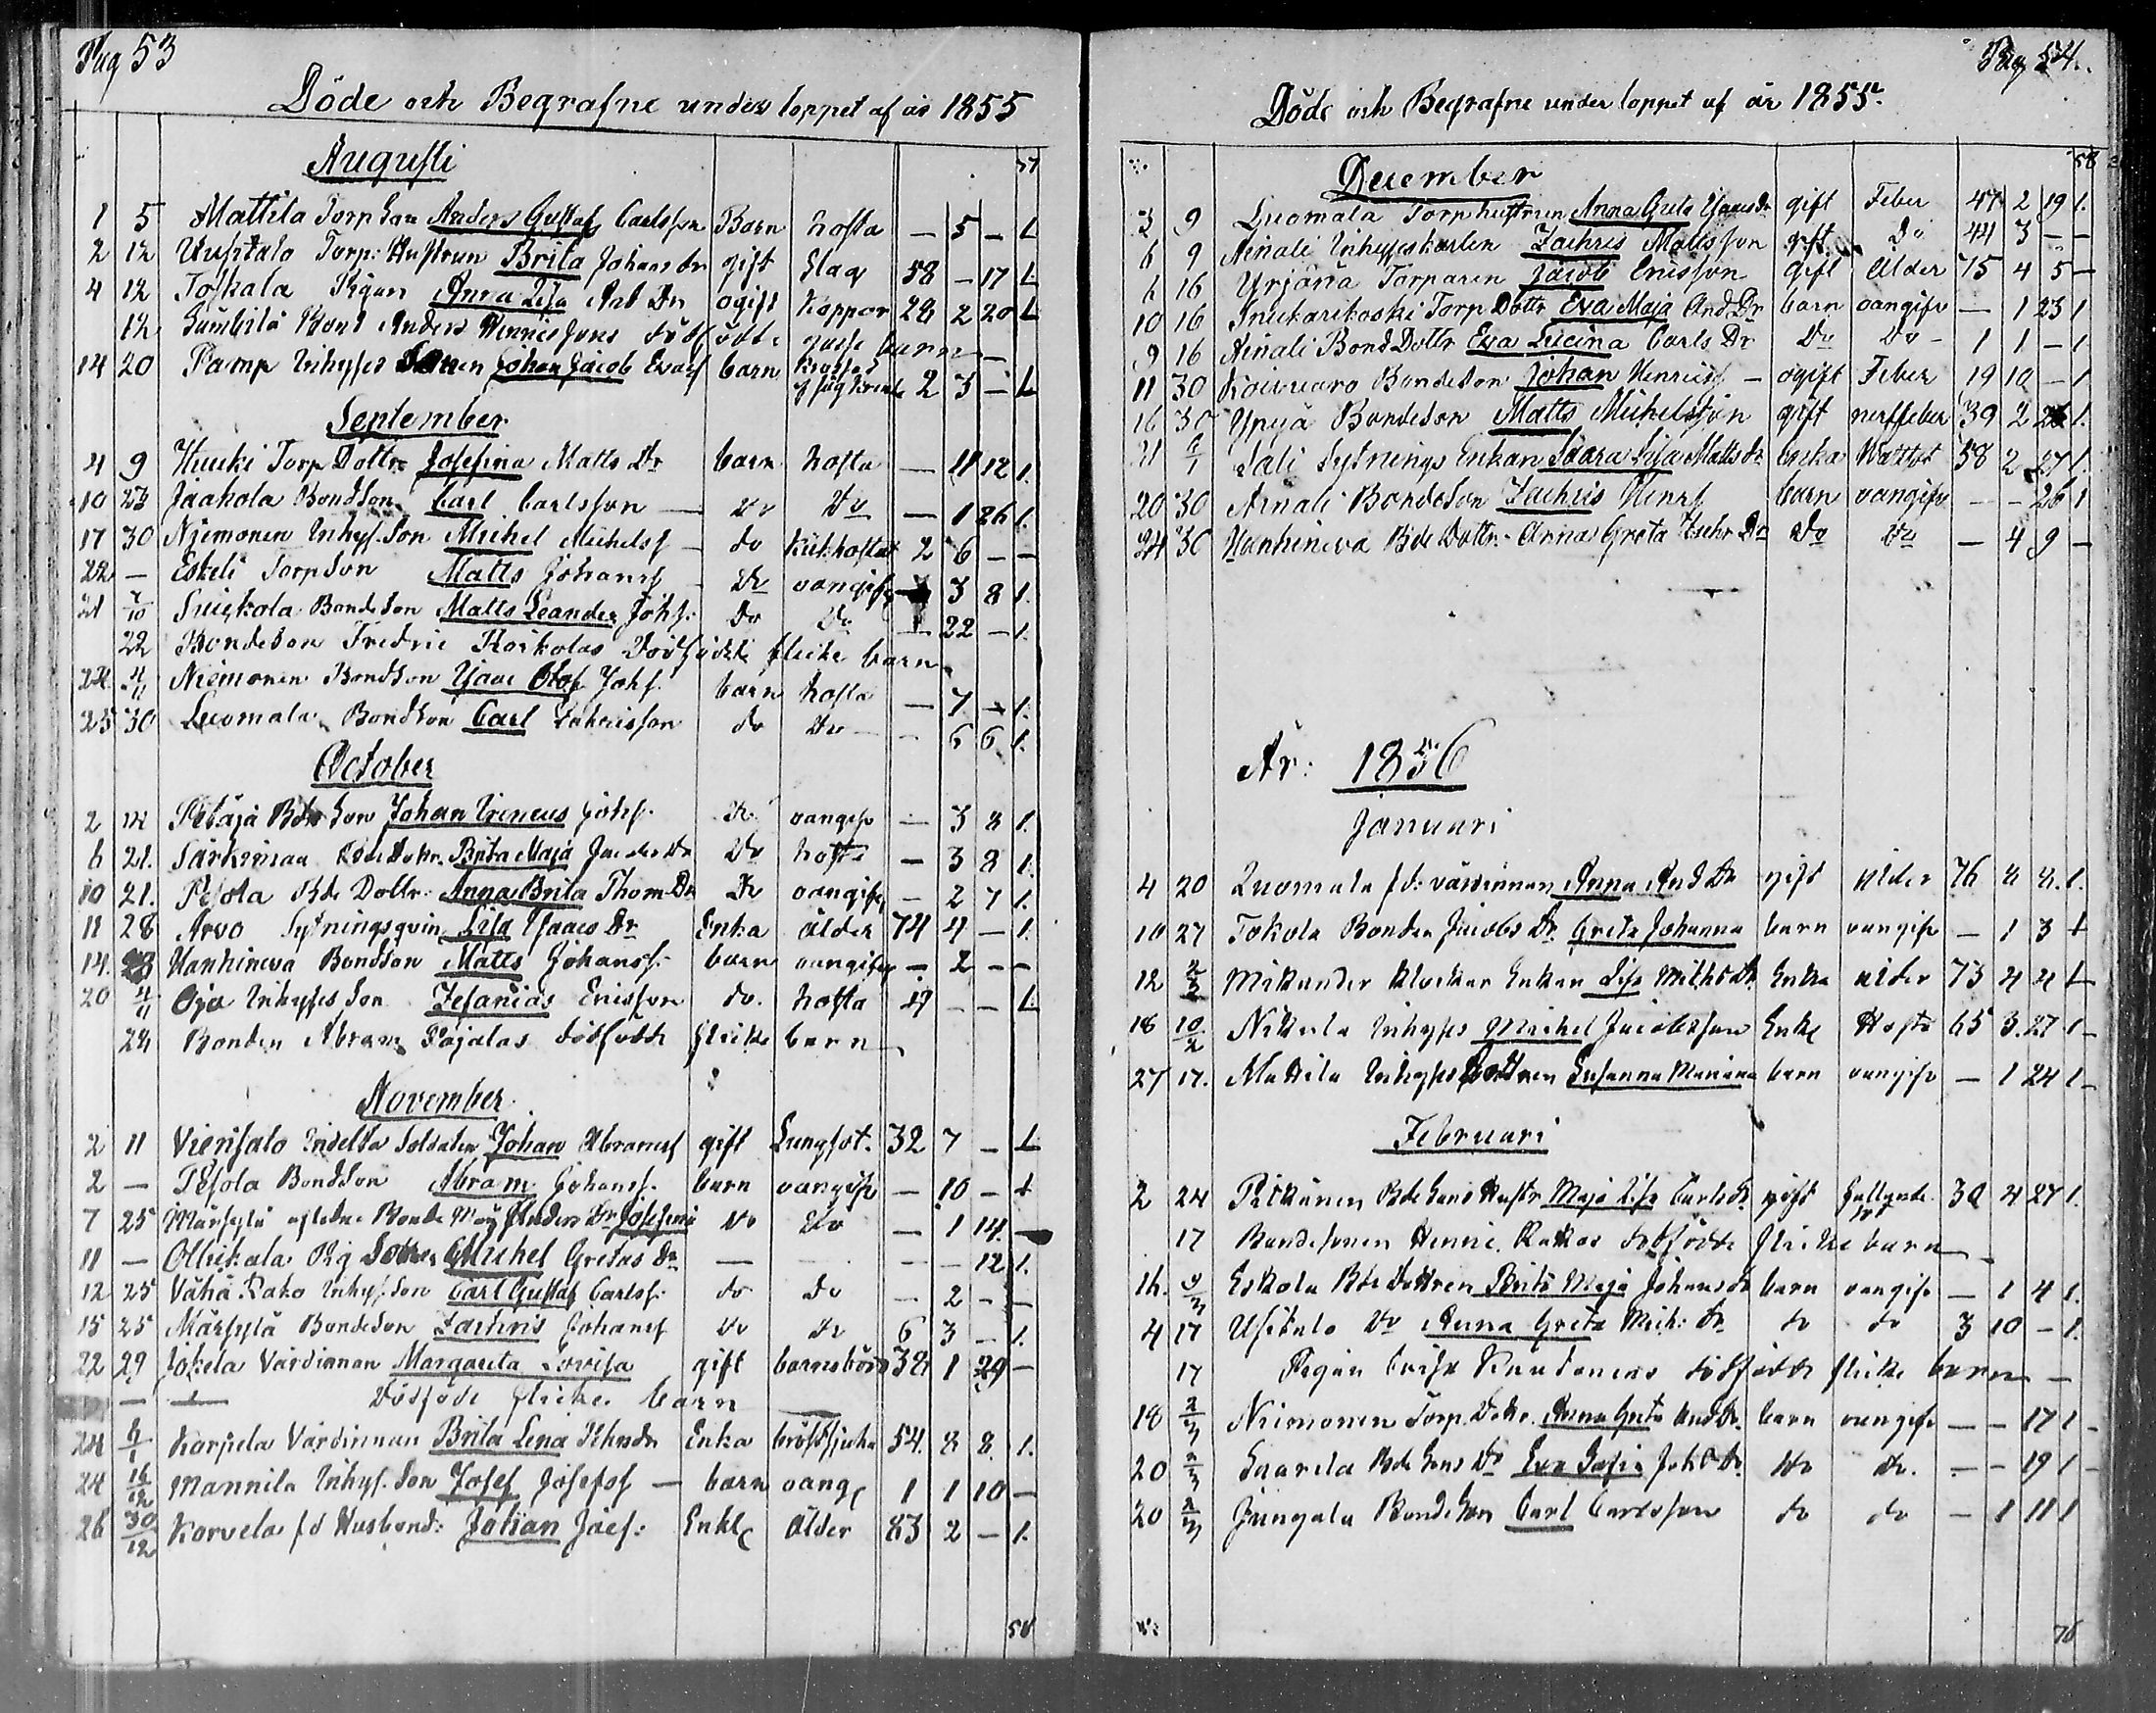 Pag 53
Döde och Begrafne under loppet af år 1855
Augusti
57
1 5 Mattila Torp Son Anders Gustaf Carlsson Barn hosta — 5 — 1.
2 12 Torp: Hustrun Brita Johans Dr gift Slag 58 — 17 1.
4 12 Toskala Pigan Anna Lisa And Dr ogift Koppor 28 2 20 1
12 Bond Anders dödfödde gosse barn —
14 20 Pamp Inhyses Sonen Johan Jacob barn 2 3 — 1
September
4 9 Huuki Torp Dottr: Josefina Matts Dr barn hosta — 11 12 1.
10 23 Jaakola BondSon Carl Carlsson — Do Do — 1 26 1.
17 30 Njemonen Inhys. Son Michel Michelss — do Kikhosta 2 6 — —
22 — Eskeli TorpSon Matts Johanss — Do oangifv 3 8 1.
21 7/10 BondeSon Matts Leander Johs: Do Do — 22 — 1.
22 BondeSon Fredric Koskolas Dödfödde flicke barn
22 4/11 Niemonen BondSon Isaac Olof Johs. barn hosta — 7 — 1.
25 30 Luomala BondSon Carl Zachrisson do Do — 6 6 1.
October
2 14 Petäjä Bde Son Johan Ireneus Johss. Do oangifv — 3 8 1.
6 21. Särkimaa Bde Dottr. Brita Maja Jacobs Dr Do hosta — 3 8 1.
10 21. Pesola Bde Dottr: Anna Brita Thom Dr Do oangifv — 2 7 1.
11 28 Arvo Sytningsqvin Lisa Isaacs Dr Enka ålder 74 4 — 1.
14. 28 Hanhineva BondSon Matts Johanss. barn oangifv — 2 — —
20 4/11 Oja Inhyses Son Zefanias Ericsson do. hosta 19 — — 1.
24 Bonden Abram Rajalas dödfödde flicke barn
November
2 11 Vierisalo Indelta Soldaten Johan Abramss gift Lungsot. 32 7 — 1
2 — Pesola BondSon Abram Johanss. barn oangifv — 10 — 1
7 25 Märsylä aflidne Bonde Måg Anders Dr Josefina Do Do — 1 14. —
11 — Ollikala Pig Sonen Michel Gretas — — — — 12 1.
12 25 Vähä Rako Inhys. Son Carl Gustaf Carlss. do do — 2 — —
15 25 Märsylä BondeSon Zachris Johanss Do Do 6 3 — 1.
22 29 Jokela Värdinnan Margareta Lovisa gift barnsbörd 38 1 29 —
— — Dödfödt flicke barn
24 6/1 Korpela Värdinnan Brita Lena Enka bröstsjuka 54. 8 8 1.
24 16/12 Mannila Inhys. Son Josef Josefss — barn oang 1 1 10 —
26 30/12 Korvela fd Husbond: Johan Jacs: Enkl ålder 83 2 — 1.
58
Pag 54.
Döde och Begrafne under loppet af år 1855.
December
58
3 9 Luomala Torphustrun Anna Greta Isaacs Dr gift Feber 47 2 19 1.
6 9 Ainali Inhyseskarlen Zachris Mattsson gift Do 44 3 — —
6 16 Yrjänä Torparen Jacob Ericsson gift Ålder 75 4 5 —
10 16 Torp Dottr Eva Maja And Dr barn oangifv — 1 23 1
9 16 Ainali Bond Dottr Eva Lucina Carls Dr Do Do — 1 1 — 1
11 30 Koivuaro BondeSon Johan Henricss — ogift Feber 19 10 — 1
16 30 Ypyä BondeSon Matts Michelsson gift nerffeber 39 2 26 1.
21 6/1 Sali Sytnings Enkan Saara Lisa Matts Dr Enka Wattot 58 2 27 1.
20 30 Ainali BondeSon Zachris Henrss barn oangifv — — 26 1
24 30 Hanhineva Bde Dottr. Anna Greta Zachr Dr Do Do — 4 9 —
År: 1856
Januari
4 20 Luomala fd: värdinnan Anna And Dr gift ålder 76 8 8. 1.
10 27 Tokola Bonden Jacobs Dr Greta Johanna barn oangifv — 1 3 1
12 2/3 Mikander Klockar Enkan Lisa Enka ålder 73 4 4 1
18 10/2 Nikula Inhyses Michel Jacobsson Enkl Hosta 65 3. 27 1
27 17. Mattila Inhyses Dottren Susanna Mariana barn oangifv — 1 24 1
Februari
2 24 Pitkänen Bde Sons Hustr Maja Lisa Carls Dr gift fallande sot 32 4 27 1.
17 Bondesonen Henric dödfödde flicke barn
16. 9/3 Eskola Bde Dottren Brita Maja Johans Dr barn oangifv — 1 4 1.
4 17 Usitalo Do Anna Greta Mich: Dr do do 3 10 — 1.
17 Pigan dödfödde flicke barn —
18 2/3 Niemonen Torp. Dottr. Anna Greta And Dr. barn oangifv — — 17 1
20 2/3 Saarela Bde Sons Dr Eva Sofia Joh. Dr Do Do. — — 19 1
20 2/3 Jungala BondeSon Carl Carlsson do do — 1 11 1
76